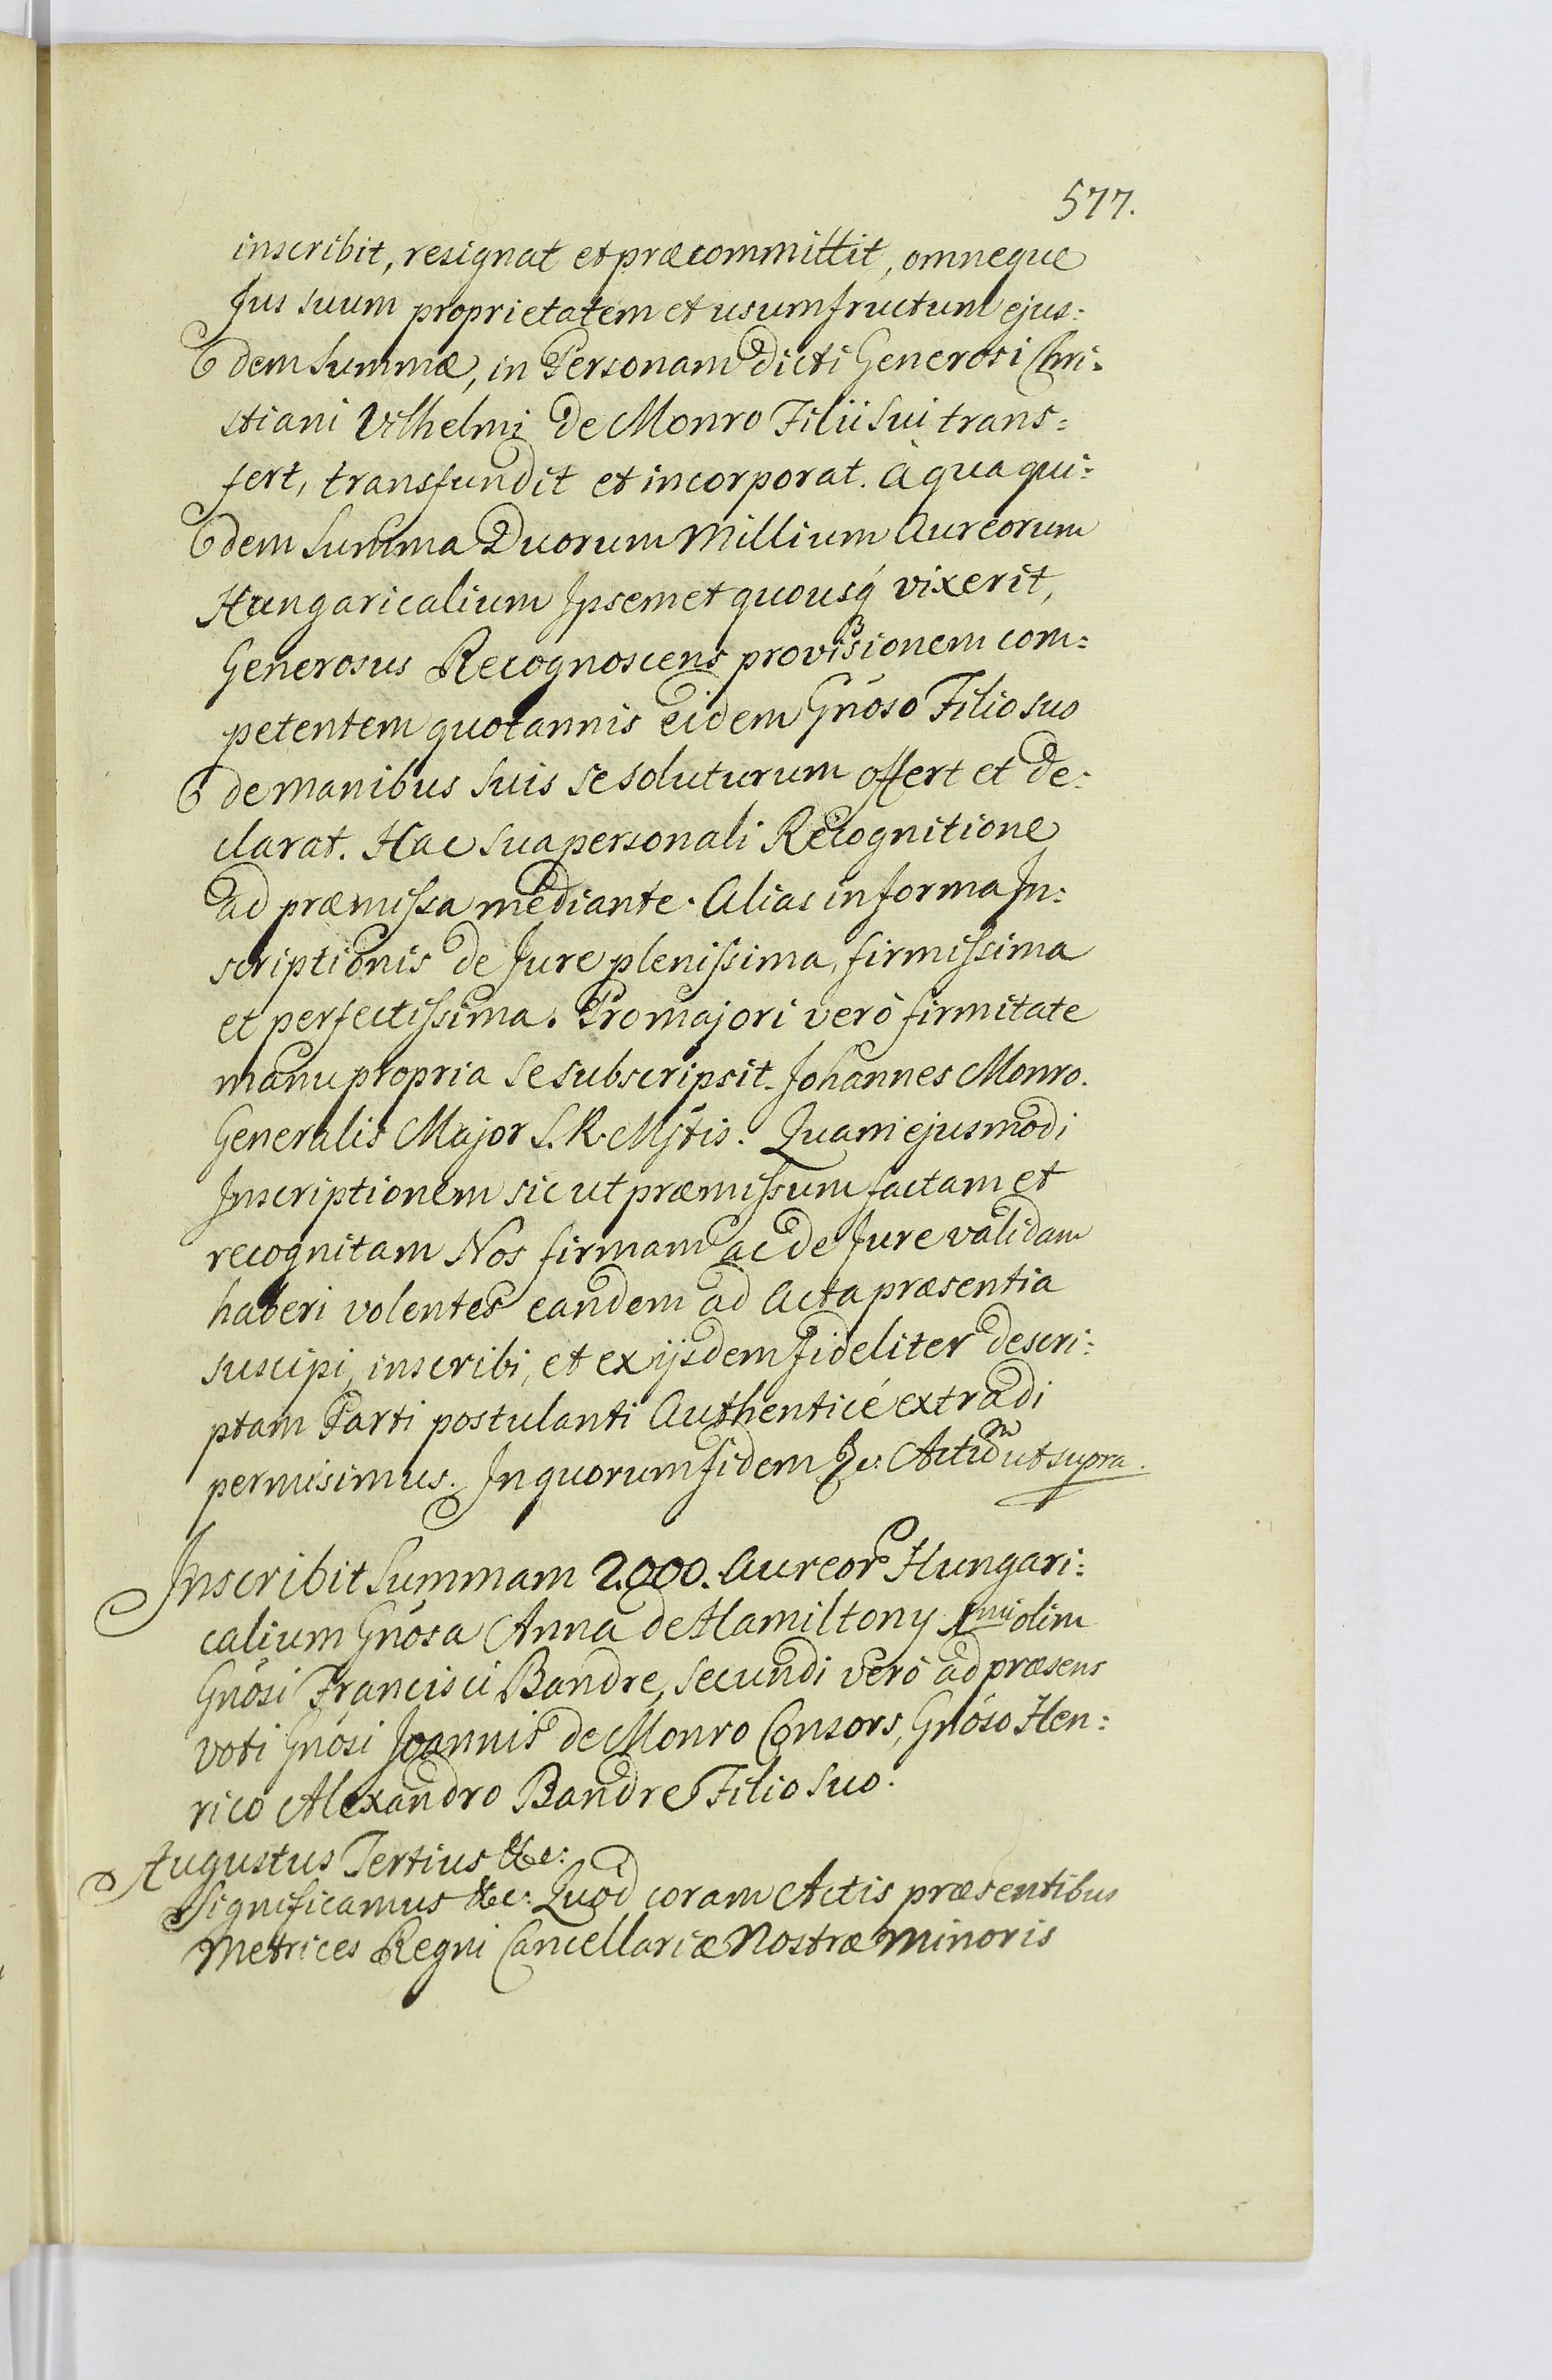 577.
inscribit, resignat et præcommittit, omneque
Jus suum proprietatem et usumfructum ejus:
dem Summæ, in Personam dicti Generosi Chri:
stiani Vilhelmi de Monro Filii sui trans:
fert, transfundit et incorporat. à qua qui:
dem Summa Duorum Millium Aureorum
Hungaricalium Ipsemet quousq́ vixerit,
Generosus Recognoscens provisionem com:
petentem quotannis eidem Gnõso Filio suo
de manibus suis se soluturum offert et de:
clarat. Hac sua personali Recognitione
ad præmissa mediante. Alias in forma In:
scriptionis de Jure plenissima, firmissima
et perfectissima. Pro majori verò firmitate
manu propria se subscripsit. Johannes Monro.
Generalis Major S. R. Mj̃tis. Quam ejusmodi
Inscriptionem sic ut præmissum factam et
recognitam Nos firmam ac de Jure validam
haberi volentes eandem ad Acta præsentia
suscipi, inscribi, et ex ijsdem fideliter descri:
ptam Parti postulanti Authenticè extradi
permisimus. In quorum fidem &c: Actum ut supra.
Inscribit Summam 2000. Aureor. Hungari:
calium Gnõsa Anna de Hamiltony 1mi olim
Gnõsi Francisci Bandre, secundi verò ad præsens
voti Gnõsi Joannis de Monro Consors, Gnõso Hen:
rico Alexandro Bandre Filio suo.
Augustus Tertius &c:
Significamus &c: Quod coram Actis præsentibus
Metrices Regni Cancellariæ Nostræ Minoris